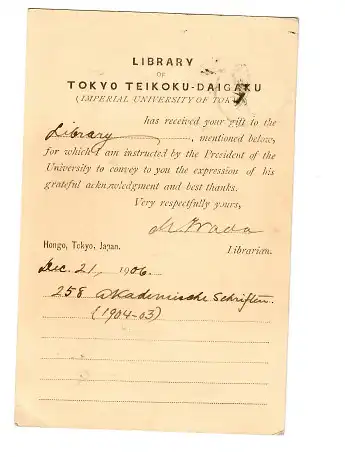 LIBRARY
OF
TOKYO TEIKOKU-DAIGAKU
(IMPERIAL UNIVERSITY OF TOKYO)
has received your gift to the
Library, mentioned below,
for which I am instructed by the President of the
University to convey to you the expression of his
grateful acknowledgment and best thanks.
Very respectfully yours,
M. Wada
Hongo, Tokyo, Japan. Librarian.
Dec. 21, 1906.
258 Akademische Schriften.
(1904-03)